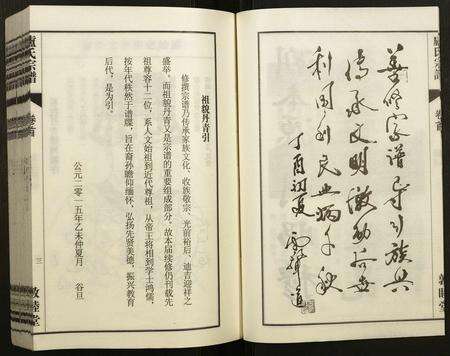 盧氏宗譜
卷首
善修家譜
族興
传承文明激励后世
利国利民
千秋
丁酉初夏
敦睦堂
盧氏宗譜
卷首
祖貌丹青引
修撰宗谱乃传承家族文化、收族敬宗、光前裕后、迪吉迎祥之
盛举。而祖貌丹青又是宗谱的重要组成部分。故本届续修仍刊载先
祖尊容十二位，系人文始祖到近代尊祖，从帝王将相到学士鸿儒，
按年代秩然于谱牒，旨在裔孙瞻仰缅怀，弘扬先贤美德，振兴教育
后代，是为引。
公元二零一五年乙未仲夏月 谷旦
三
敦睦堂